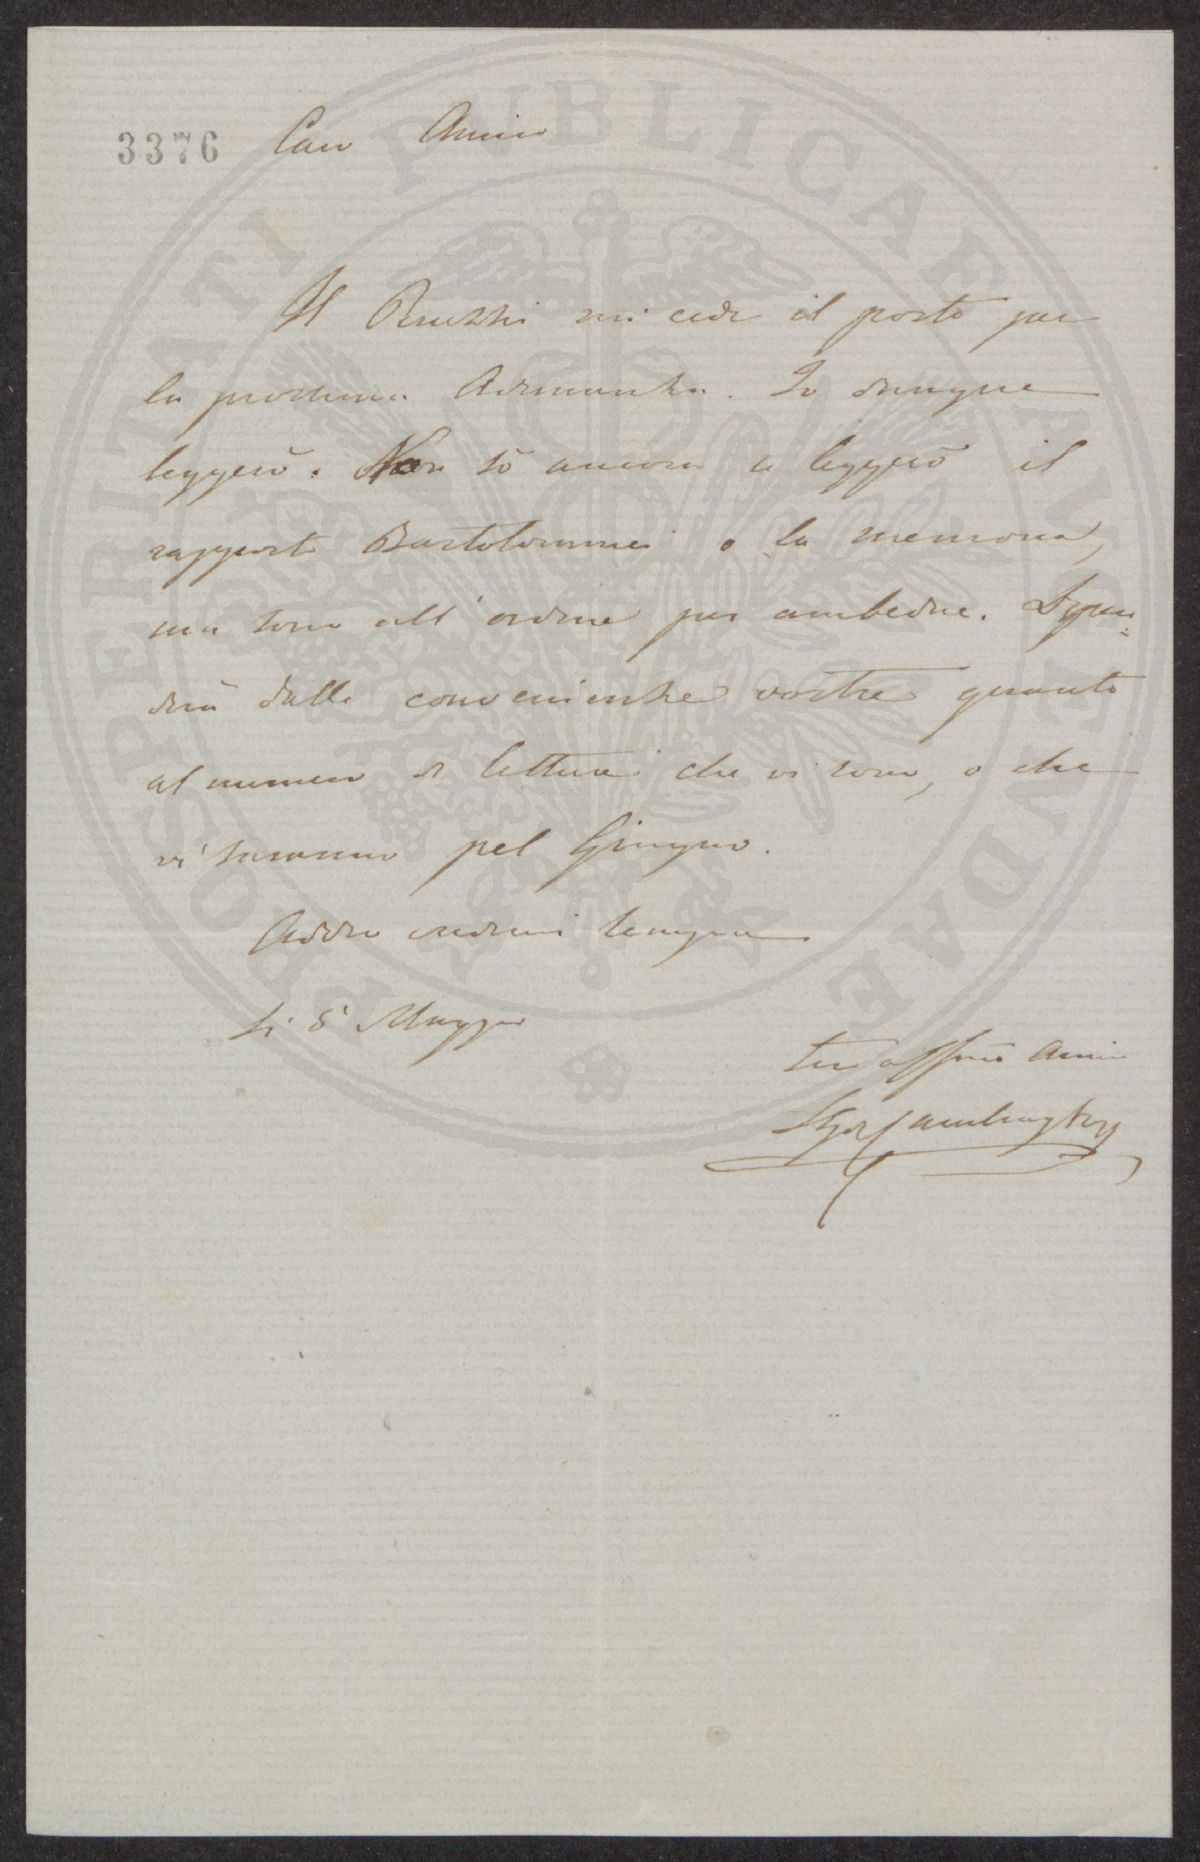 3376 Caro Amico
Il Peruzzi mi cede il posto per
la prossima Adunanza. Io dunque
leggerò. Non sò ancora se leggerò il
rapporto Bartolommei o la memoria,
ma sono all'ordine per ambedue. Dipen=
derà dalle convenienze vostre quanto
al numero di letture che vi sono, o che
vi saranno pel Giugno.
Addio credimi sempre
Li 5 Maggio
tuo affmo Amico
L. G. de Cambray Digny
PROSPERITATI PUBLICAE AUGENDAE